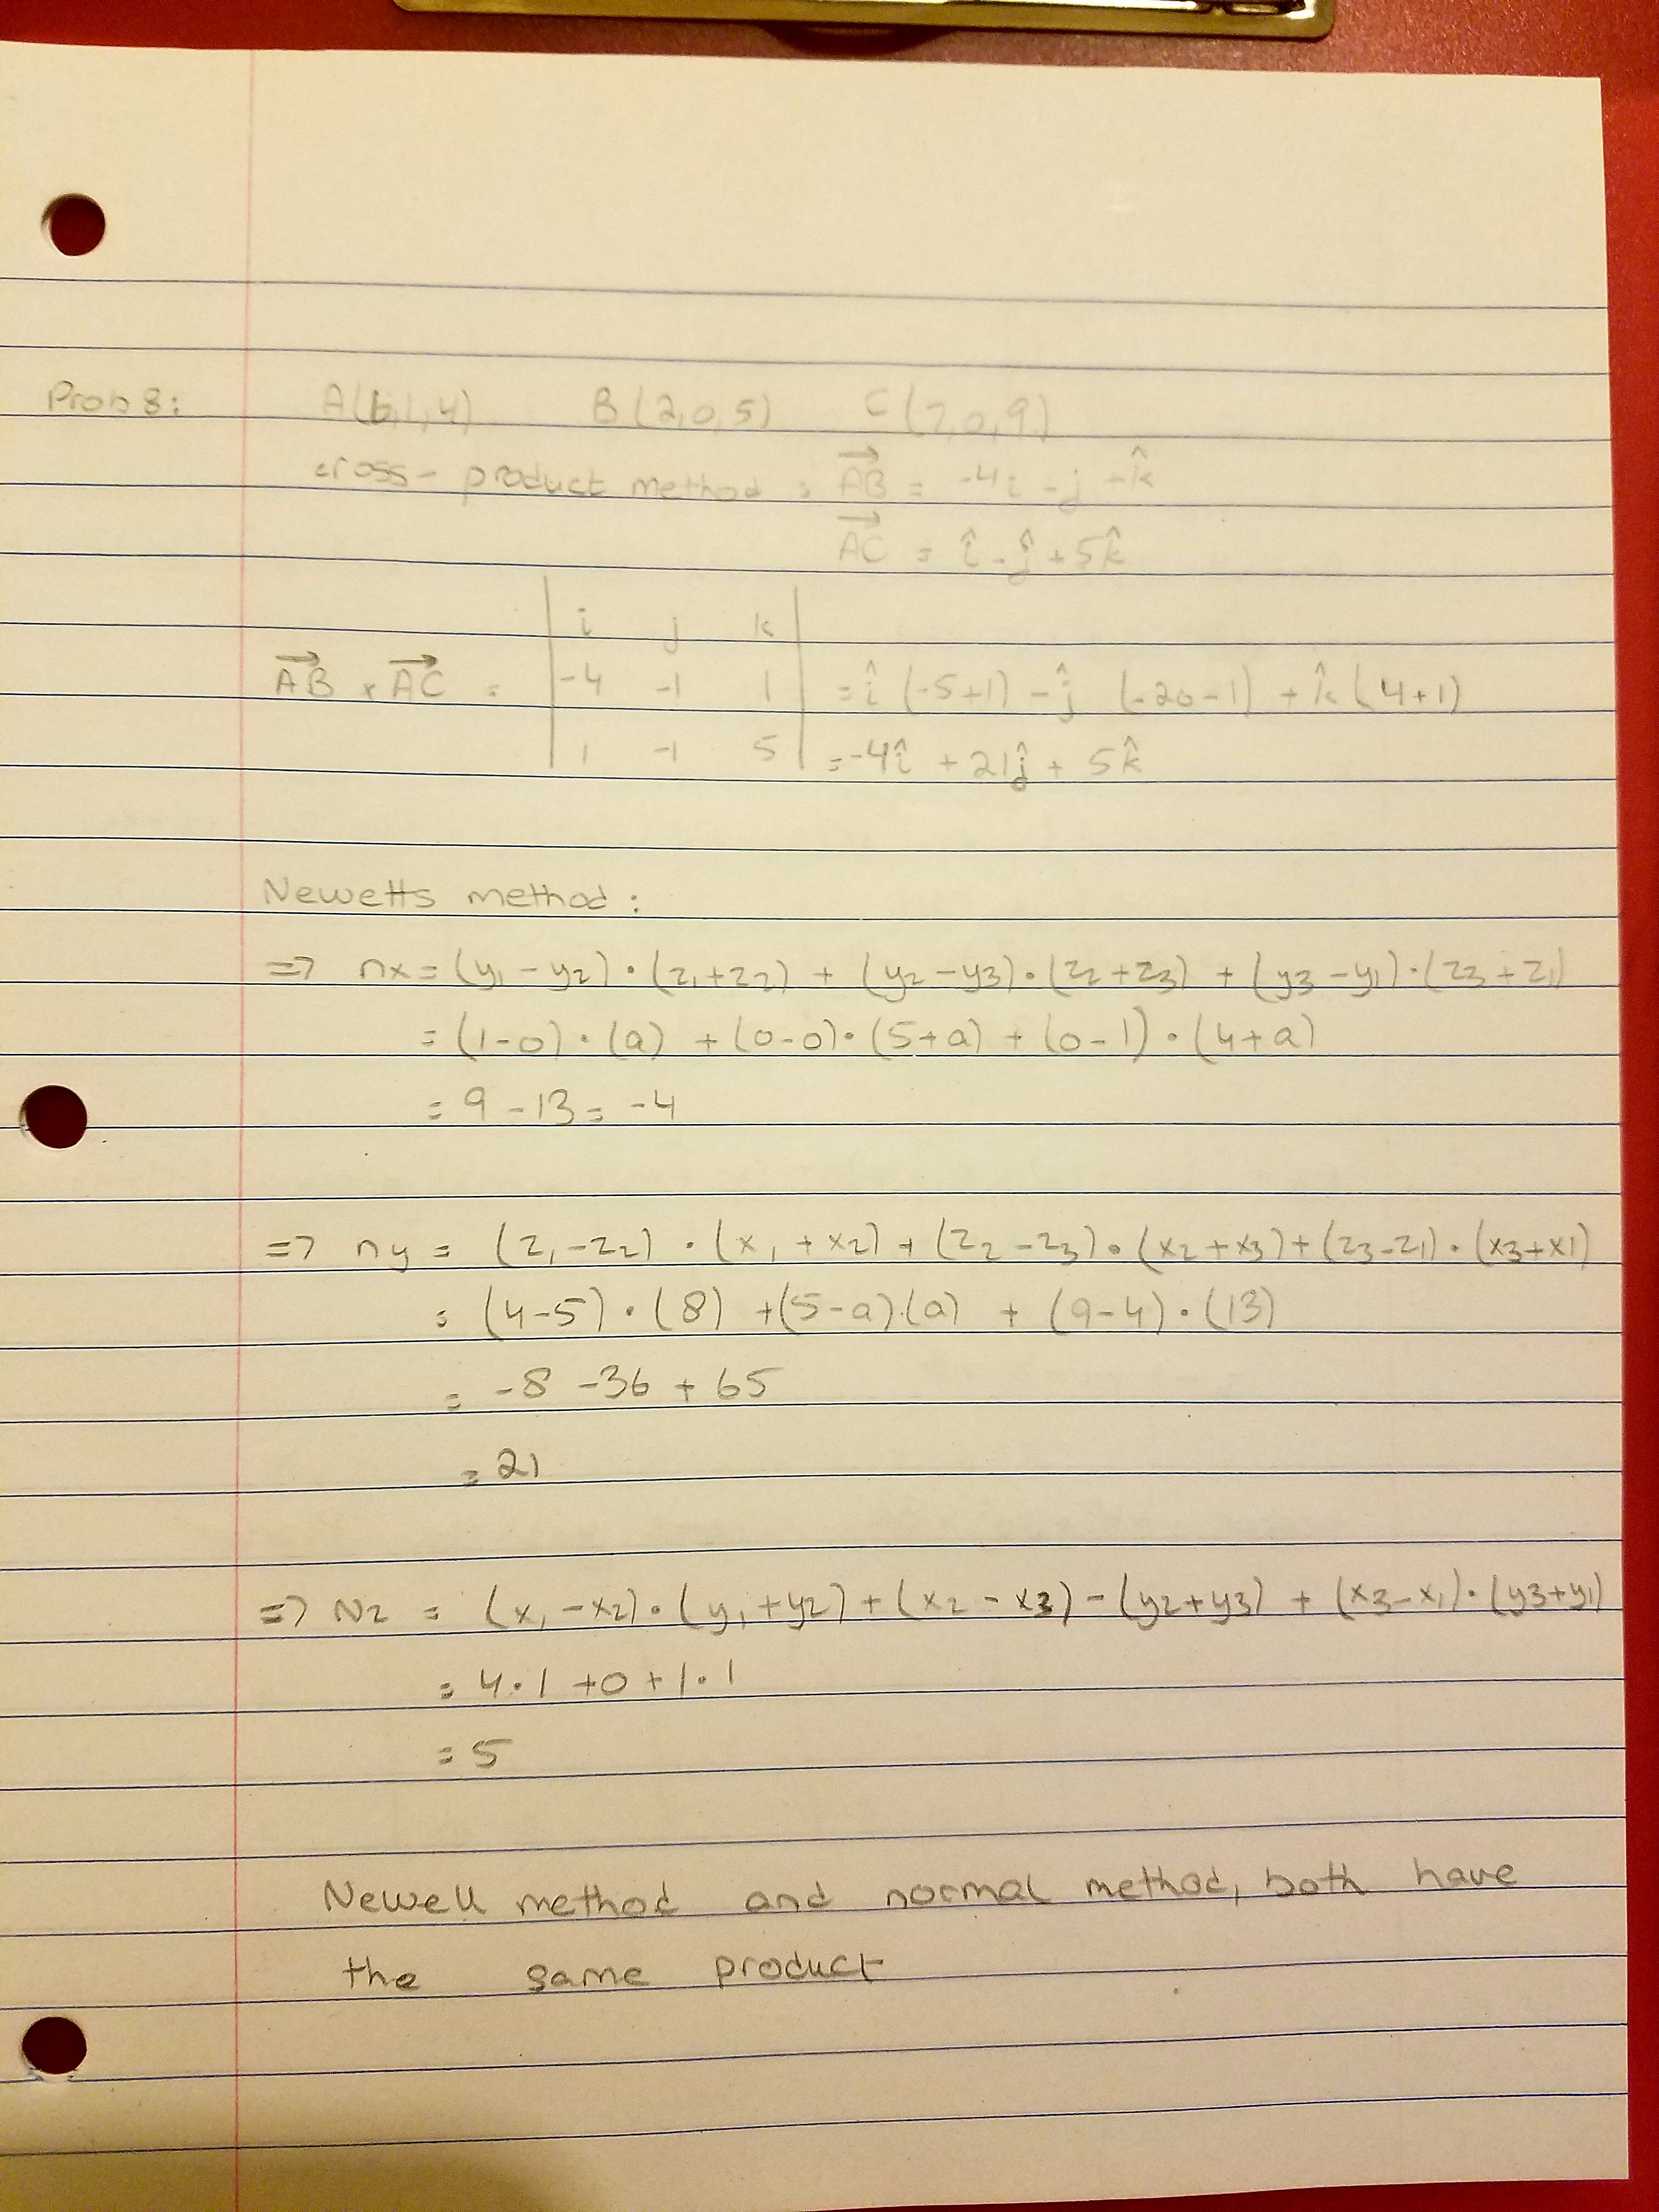 Prob 8: A(6,1,4) B(2,0,5) C(7,0,9)
cross-product method: AB→ = -4i -j +k̂
AC→ = î - ĵ + 5k̂
i j k
AB→ x AC→ = -4 -1 1 = î (-5+1) - ĵ (-20-1) + k̂ (4+1)
1 -1 5 = -4î + 21ĵ + 5k̂
Newetts method:
=> nx = (y1 - y2) · (z1+z2) + (y2 - y3) · (z2+z3) + (y3 - y1) · (z3+z1)
= (1-0) · (9) + (0-0) · (5+9) + (0-1) · (4+9)
= 9 - 13 = -4
=> ny = (z1 - z2) · (x1 + x2) + (z2 - z3) · (x2 + x3) + (z3 - z1) · (x3+x1)
= (4-5) · (8) + (5-9)·(9) + (9-4) · (13)
= -8 -36 + 65
= 21
=> Nz = (x1 - x2) · (y1 + y2) + (x2 - x3) - (y2+y3) + (x3 - x1) · (y3+y1)
= 4·1 +0 + 1·1
= 5
Newell method and normal method, both have
the same product